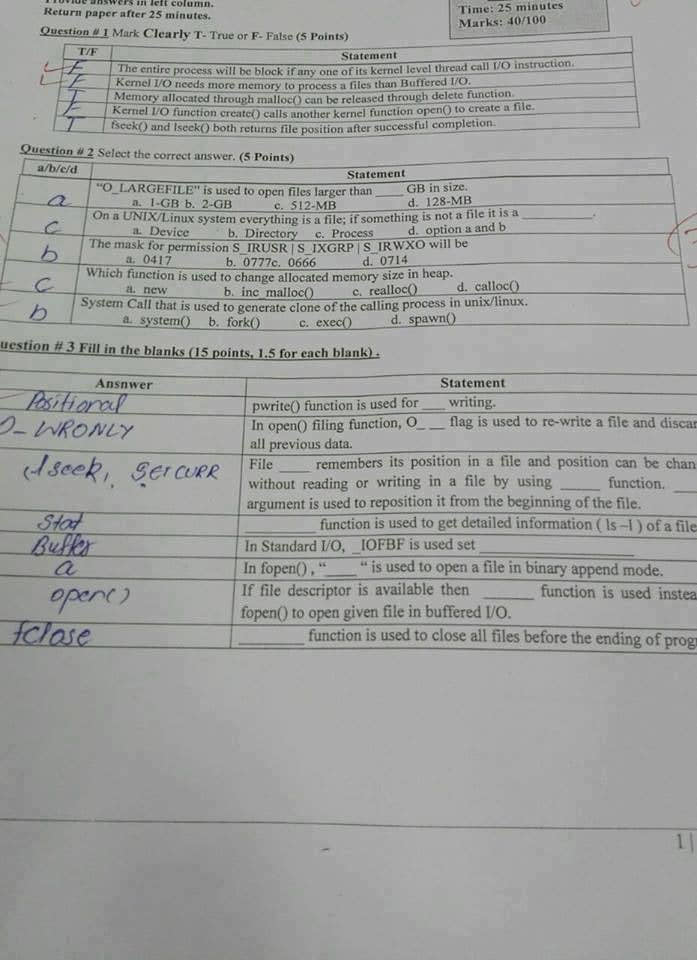 Provide answers in left column.
Return paper after 25 minutes.
Time: 25 minutes
Marks: 40/100
Question # 1 Mark Clearly T- True or F- False (5 Points)
T/F Statement
F The entire process will be block if any one of its kernel level thread call I/O instruction.
F Kernel I/O needs more memory to process a files than Buffered I/O.
T Memory allocated through malloc() can be released through delete function.
F Kernel I/O function create() calls another kernel function open() to create a file.
T fseek() and lseek() both returns file position after successful completion.
Question # 2 Select the correct answer. (5 Points)
a/b/c/d Statement
a "O_LARGEFILE" is used to open files larger than ____ GB in size.
a. 1-GB b. 2-GB c. 512-MB d. 128-MB
c On a UNIX/Linux system everything is a file; if something is not a file it is a __________.
a. Device b. Directory c. Process d. option a and b
b The mask for permission S_IRUSR | S_IXGRP | S_IRWXO will be
a. 0417 b. 0777c. 0666 d. 0714
c Which function is used to change allocated memory size in heap.
a. new b. inc_malloc() c. realloc() d. calloc()
b System Call that is used to generate clone of the calling process in unix/linux.
a. system() b. fork() c. exec() d. spawn()
uestion # 3 Fill in the blanks (15 points, 1.5 for each blank).
Ansnwer Statement
Positional pwrite() function is used for ___ writing.
O_WRONLY In open() filing function, O_ __ flag is used to re-write a file and discar
all previous data.
lseek, SETCURR File ____ remembers its position in a file and position can be chan
without reading or writing in a file by using ______ function. ___
argument is used to reposition it from the beginning of the file.
Stat _________ function is used to get detailed information ( ls –l ) of a file
Buffer In Standard I/O, _IOFBF is used set ____________________
a In fopen() , "____ " is used to open a file in binary append mode.
open() If file descriptor is available then _______ function is used instea
fopen() to open given file in buffered I/O.
fclose _________ function is used to close all files before the ending of prog
1 |